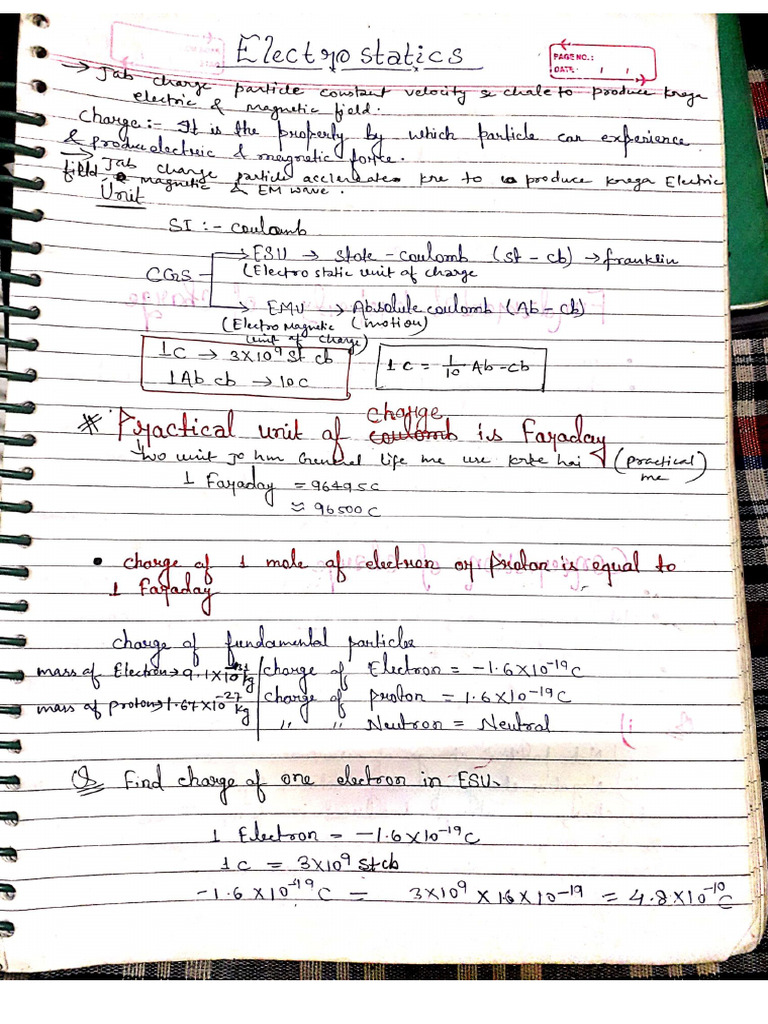 Electrostatics
PAGE NO.:
DATE: / /
→ Jab charge particle constant velocity se chale to produce krega
electric & magnetic field.
Charge:- It is the property by which particle can experience
& produce electric & magnetic force.
→ Jab charge particle accelerate kre to produce krega Electric
field, magnetic & EM wave.
Unit
SI :- coulomb
CGS
→ ESU → state-coulomb (st-cb) → franklin
(Electro static unit of charge
→ EMU → Absolute coulomb (Ab-cb)
(Electro Magnetic (motion)
unit of charge)
1C → 3×10⁹ st cb
1 Ab cb → 10 C
1 C = 1/10 Ab-cb
* Practical unit of coulomb charge is Faraday
→ wo unit jo hm General life me use krte hai (practical)
me
1 Faraday = 96495C
≈ 96500C
• charge of 1 mole of electron or proton is equal to
1 Faraday
charge of fundamental particles
mass of Electron → 9.1×10⁻³¹ kg charge of Electron = -1.6×10⁻¹⁹C
mass of proton → 1.67×10⁻²⁷ kg charge of proton = 1.6×10⁻¹⁹C
" " Neutron = Neutral
Q Find charge of one electron in ESU.
1 Electron = -1.6×10⁻¹⁹C
1C = 3×10⁹ stcb
-1.6×10⁻¹⁹C = 3×10⁹ × 1.6×10⁻¹⁹ = 4.8×10⁻¹⁰ C